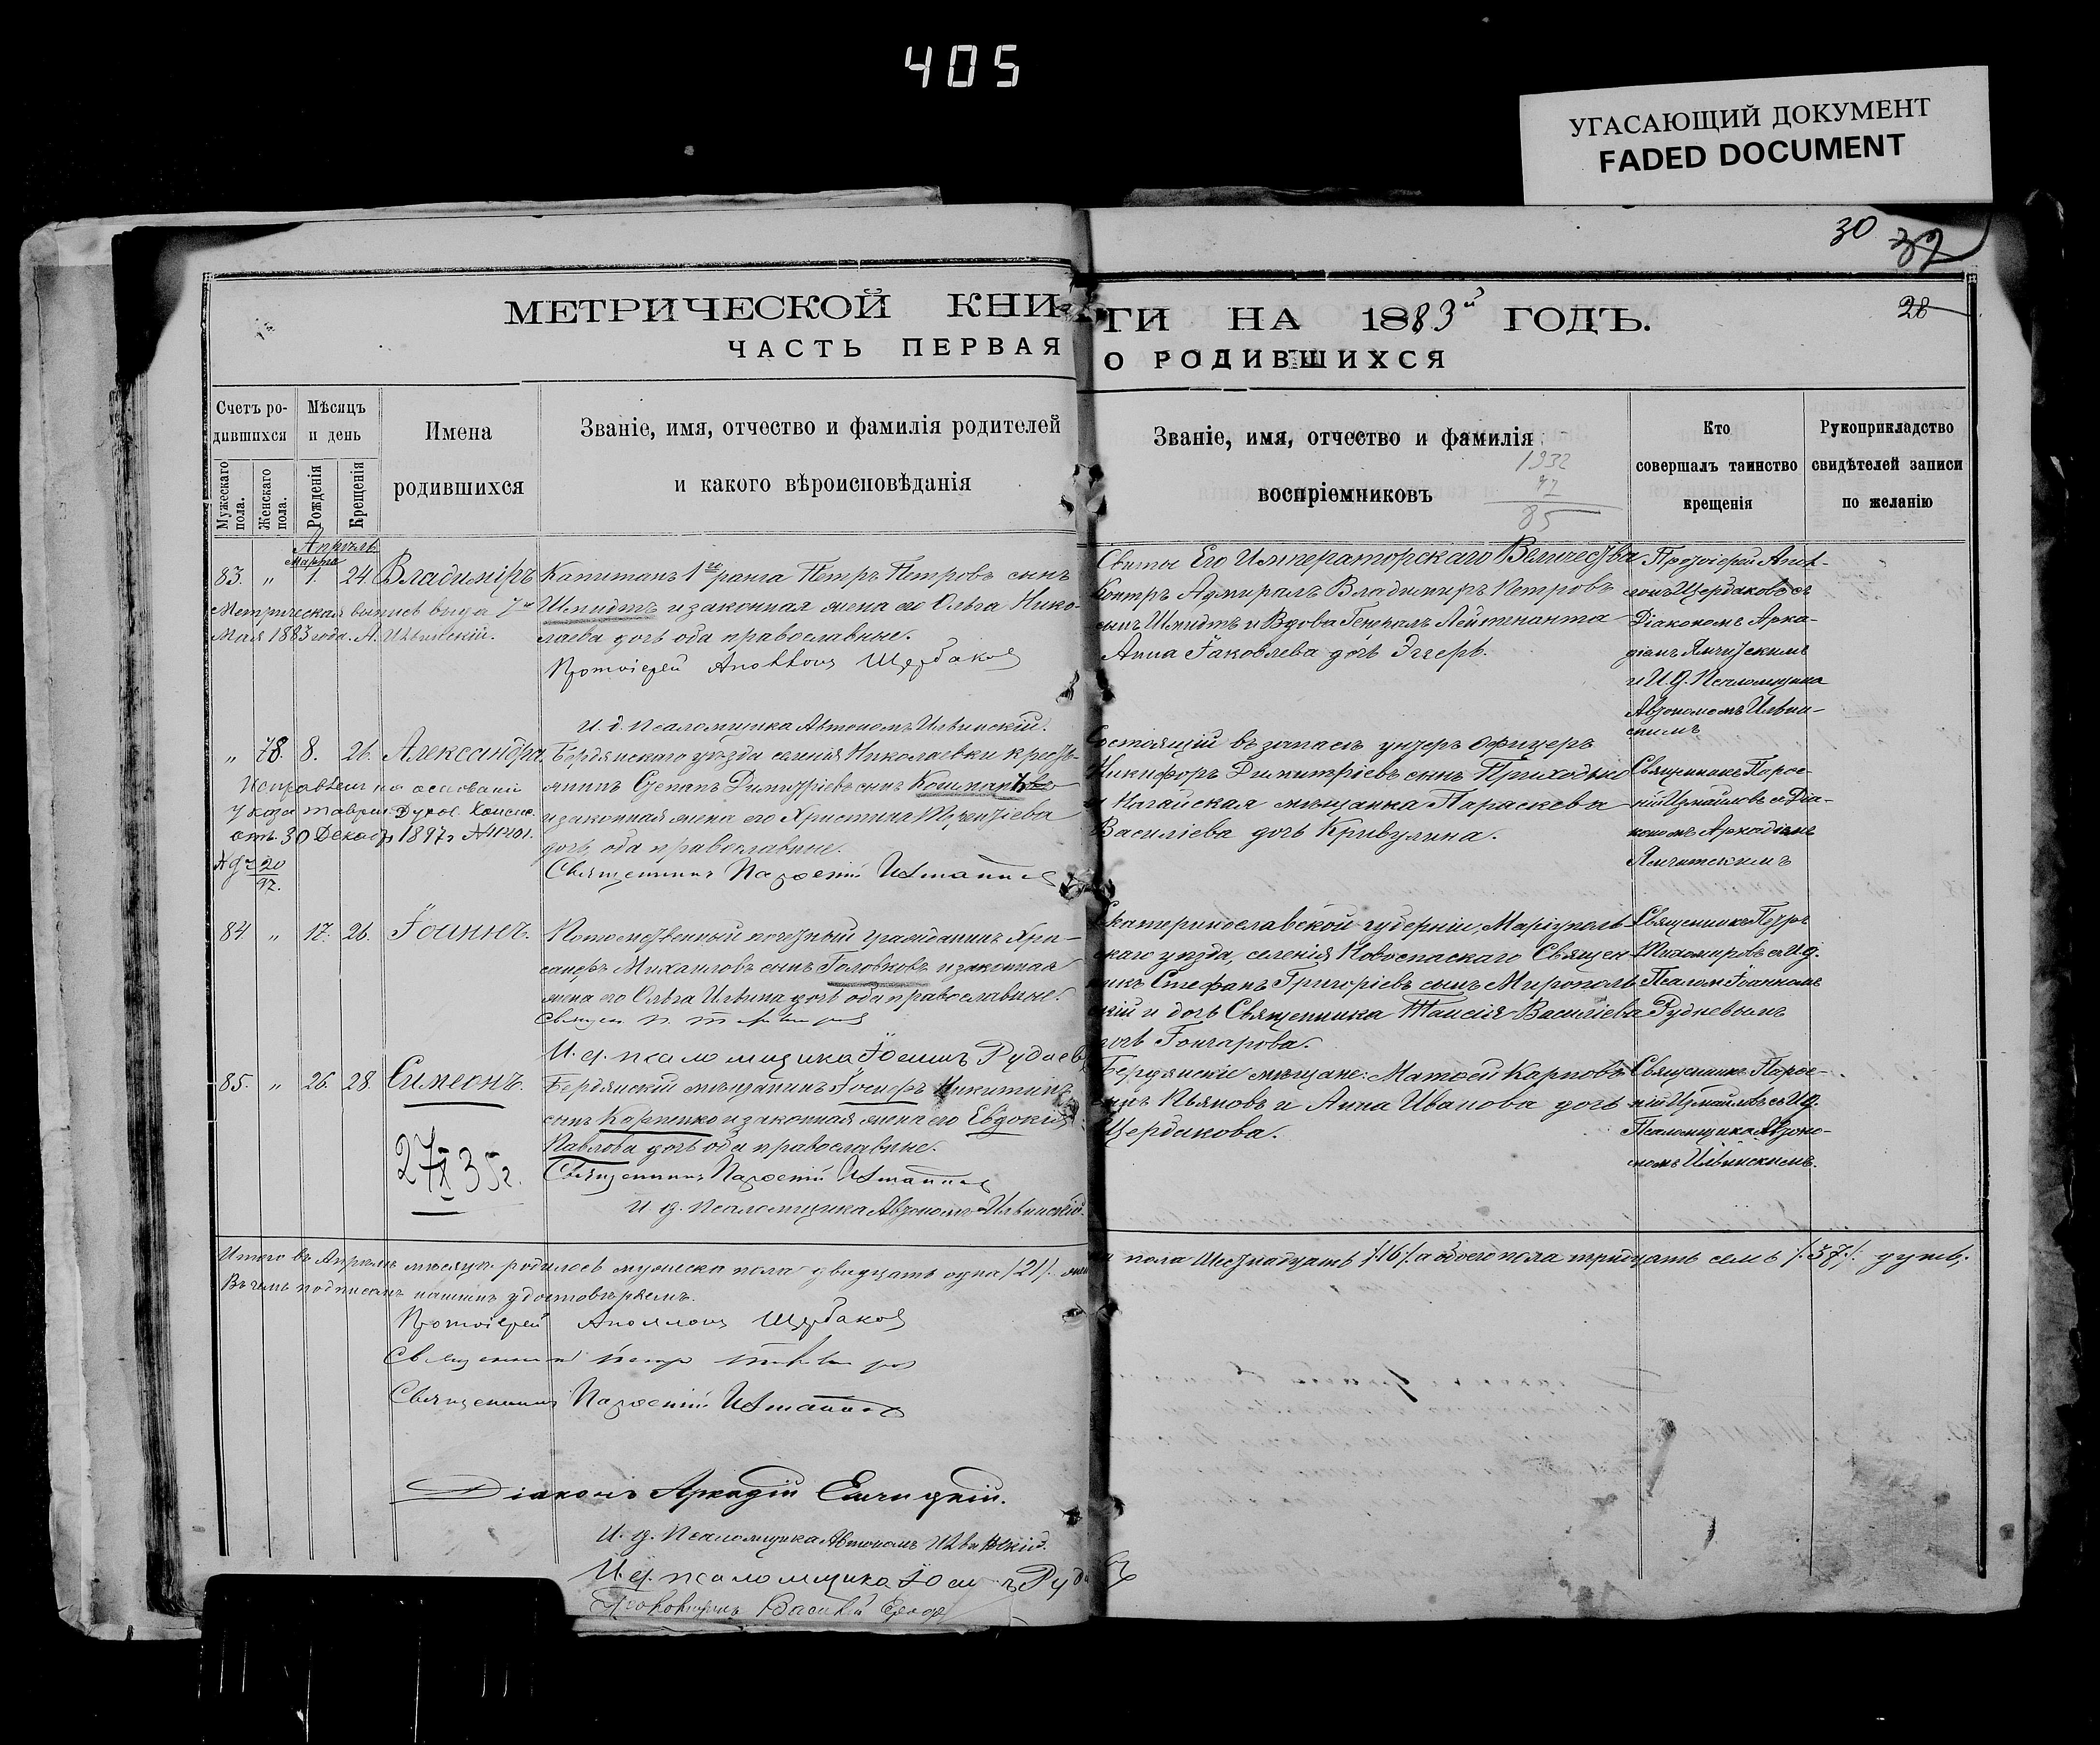 405
УГАСАЮЩИЙ ДОКУМЕНТ
FADED DOCUMENT
30
32
28
МЕТРИЧЕСКОЙ КНИ-ГИ НА 1883й ГОДЪ.
ЧАСТЬ ПЕРВАЯ О РОДИВШИХСЯ
Счетъ ро-
дившихся
Мужескаго пола.
Женскаго пола.
Мѣсяцъ
и день
Рожденія
Крещенія
Имена
родившихся
Званіе, имя, отчество и фамилія родителей
и какого вѣроисповѣданія
Званіе, имя, отчество и фамилія
воспріемниковъ
1932
97
85
Кто
совершалъ таинство
крещенія
Рукоприкладство
свидѣтелей записи
по желанію
Апрѣль
Марта
83. „ 1. 24. Владиміръ
Метрическая выпись выдана 7го
Мая 1883 года. А. Ильинскій.
Капитанъ 1го ранга Петръ Петровъ сынъ
Шмидтъ и законная жена его Ольга Нико-
лаева дочь оба православные.
Протоіерей Аполлонъ Щербаковъ
И. д. псаломщика Автономъ Ильинскій.
Свиты Его Императорскаго Величества
Контръ Адмиралъ Владимиръ Петровъ
сынъ Шмидтъ и Вдова Генералъ Лейтенанта
Анна Іаковлева дочь Эггеръ.
Протоіерей Апол-
лонъ Щербаковъ съ
Діакономъ Арка-
діемъ Ямчитскимъ
и И. д. Псаломщика
Автономомъ Ильин-
скимъ
„ 78. 8. 26. Александра
Исправлен на основаніи
указа Таврич. Духов. Консис.
отъ 30 Декабр 1897 г. №
20
97.
Бердянскаго уѣзда селенія Николаевки кресть-
янинъ Степанъ Димитріевъ сынъ
и законная жена его Христина Терентіева
дочь оба православные.
Священникъ Парѳеній Измаиловъ
Состоящій въ запасѣ унтеръ офицеръ
Никифоръ Димитріевъ сынъ Приходько
и Ногайская мѣщанка Параскева
Василіева дочь Кривулина.
Священникъ Парѳе-
ній Измаиловъ съ Діа-
кономъ Аркадіемъ
Ямчитскимъ
84. „ 17. 26. Іоаннъ.
Потомственный почетный гражданинъ Хри-
санфъ Михаиловъ сынъ Головковъ и законная
жена его Ольга Ильина дочь оба православные.
Священ П. Тихомиров
И. д. псаломщика Іоаннъ Рудневъ
Екатеринославской губерніи, Маріуполь-
скаго уѣзда, селенія Новоспаскаго Священ-
никъ Стефанъ Григоріевъ сынъ Мирополь-
скій и дочь Священника Таисія Василіева
дочь Гончарова.
Священникъ Петръ
Тихомировъ съ И.д.
Псалом. Іоанномъ
Рудневымъ
85. „ 26. 28. Симеонъ.
27 X 35 г.
Бердянскій мѣщанинъ Іосифъ Никитинъ
сынъ Карпенко и законная жена его Евдокія
Павлова дочь оба православные.
Священникъ Парѳеній Измаиловъ
И. д. Псаломщика Автономъ Ильинскій.
Бердянскіе мѣщане: Матѳей Карповъ
сынъ Кьяновъ и Анна Иванова дочь
Щербакова.
Священникъ Парѳе-
ній Измаиловъ съ И.д.
Псаломщика Автоно-
момъ Ильинскимъ.
Итого въ Апрѣлѣ мѣсяцѣ родилось мужеска пола двадцать одна /21/. жен пола Шестнадцать /16/. а обоего пола тридцать семь /.37/. душъ;
Въ чемъ подписомъ нашимъ удостовѣряемъ.
Протоіерей Аполлонъ Щербаковъ
Священникъ Петръ Тихомиров
Священникъ Парѳеній Измаиловъ
Діаконъ Аркадій Емчицкій.
И. д. Псаломщика Автономъ Ильинскій.
И. д. псаломщика Іоаннъ Рудневъ
Василій